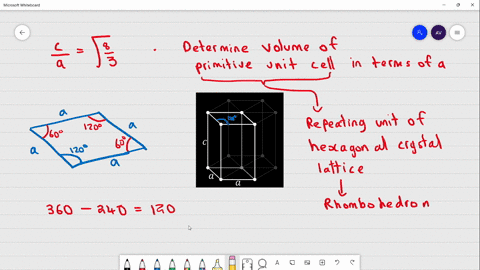 Microsoft Whiteboard
c/a = √8/3 · Determine volume of
primitive unit cell in terms of a
a
120°
60°
a
a
60°
120°
a
c
a
a
Repeating unit of
hexagonal crystal
lattice
Rhombohedron
360 - 240 = 120
AV